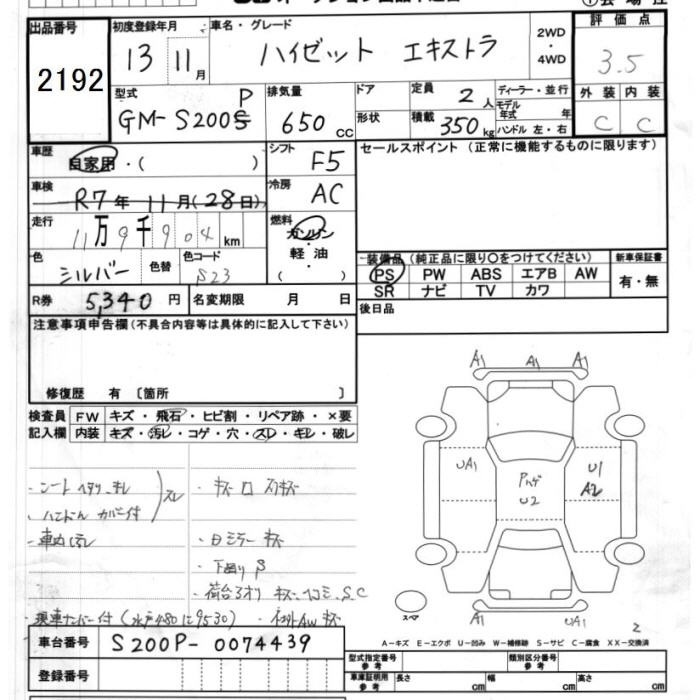 出品番号
2192
初度登録年月
13 11月
車名・グレード
ハイゼット エキストラ
2WD
・
4WD
評価点
3.5
外装 内装
C C
型式
GM-S200P
排気量
650 cc
ドア
形状
定員 2 人
積載 350 kg
ディーラー・並行
モデル
年式 年
ハンドル 左・右
車歴
自家用・( )
シフト
F5
セールスポイント (正常に機能するものに限ります)
車検
R7年11月(28日)
冷房
AC
走行
11万9千904 km
燃料
ガソリン
・
軽油
( )
色
シルバー
色替
色コード
S23
装備品 (純正品に限り〇をつけてください)
新車保証書
PS PW ABS エアB AW
SR ナビ TV カワ
有・無
R券 5,340円
名変期限 月 日
後日品
注意事項申告欄(不具合内容等は具体的に記入して下さい)
修復歴 有 〔箇所 〕
検査員 FW キズ・飛石・ヒビ割・リペア跡・×要
記入欄 内装 キズ・汚レ・コゲ・穴・スレ・キレ・破レ
・シートヘタリ、キレ
・ハンドルカバー付
スレ
・車内汚レ
・キズ
・ロミラーキズ
・下廻りS
・荷台アオリ キズ、ヘコミ、S、C
・現車ナンバー付(水戸480に9530)
A1 A1 A1
UA1
U2
U1
A2
A1 UA1
スペア
2
A-キズ E-エクボ U-凹み W-補修跡 S-サビ C-腐食 XX-交換済
車台番号 S200P-0074439
登録番号
型式指定番号
参考
類別区分番号
参考
車庫証明用
参考
長さ cm 幅 cm 高さ cm